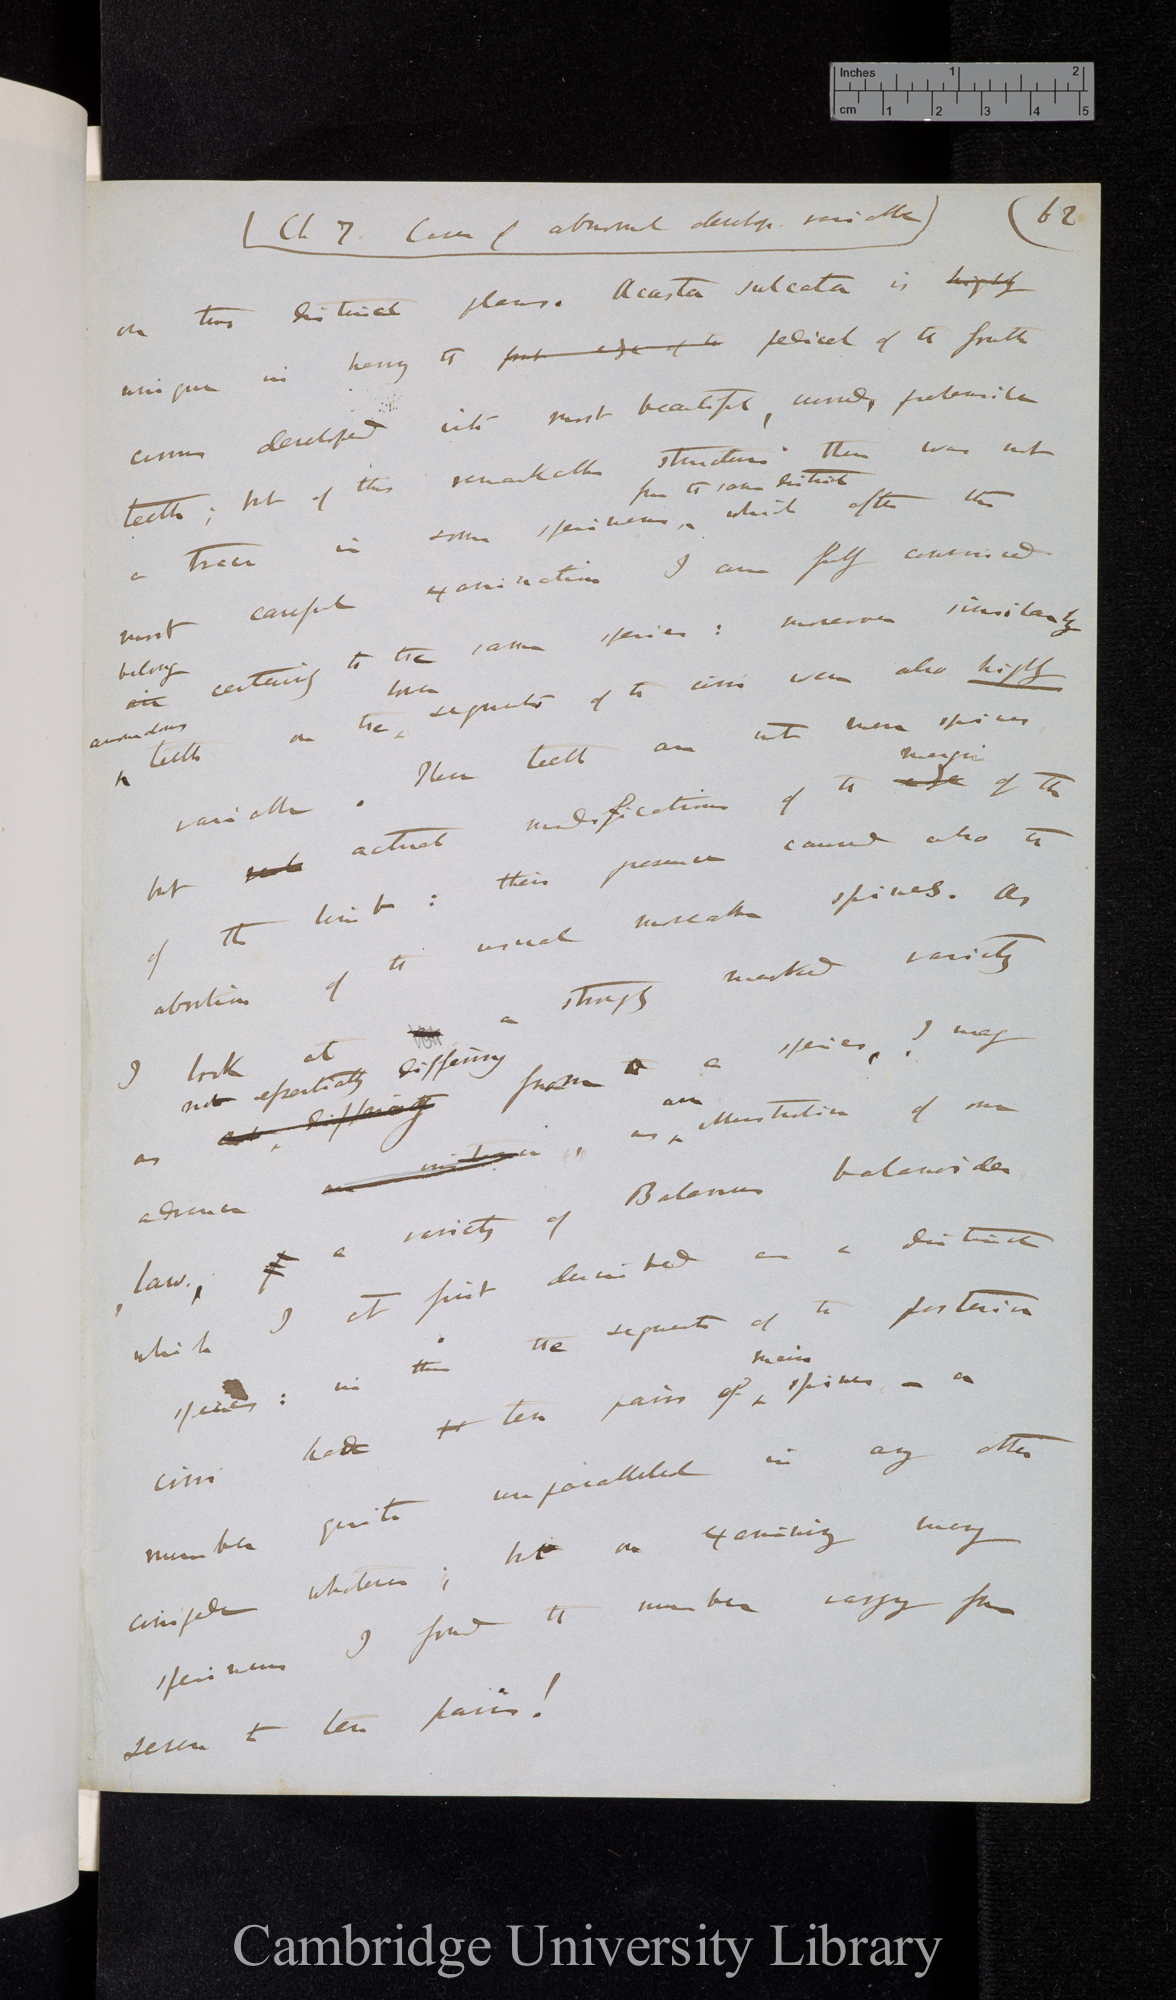 Inches 1 2
cm 1 2 3 4 5
(Ch 7. Cases of abnormal develop. variable) (62
on two distinct plans. Acasta sulcata is highly
unique in having the front edge of the pedicel of the fourth
cirrus developed into most beautiful, curved, prehensile
teeth; but of this remarkable structure there was not
from the same district
a trace in some specimens, which after the
most careful examination I am fully convinced
belong
certainly to the same species: moreover similarly
anomalous
lower
teeth on the segments of the cirri were also highly
variable. These teeth are not mere spines
margin
but actual modifications of the edge of the
of the limb: their presence caused also the
abortion of the usual moveable spines. As
I look at a strongly marked variety
not essentially differing
as differing from a species, I may
an
advance as illustration of our
law, a variety of Balanus balanoides
which I at first described as a distinct
species: in this the segments of the posterior
main
cirri had ten pairs of spines – a
number quite unparalleled in any other
cirripede whatever; but on examining many
specimens I found the number varying from
seven to ten pairs!
Cambridge University Library